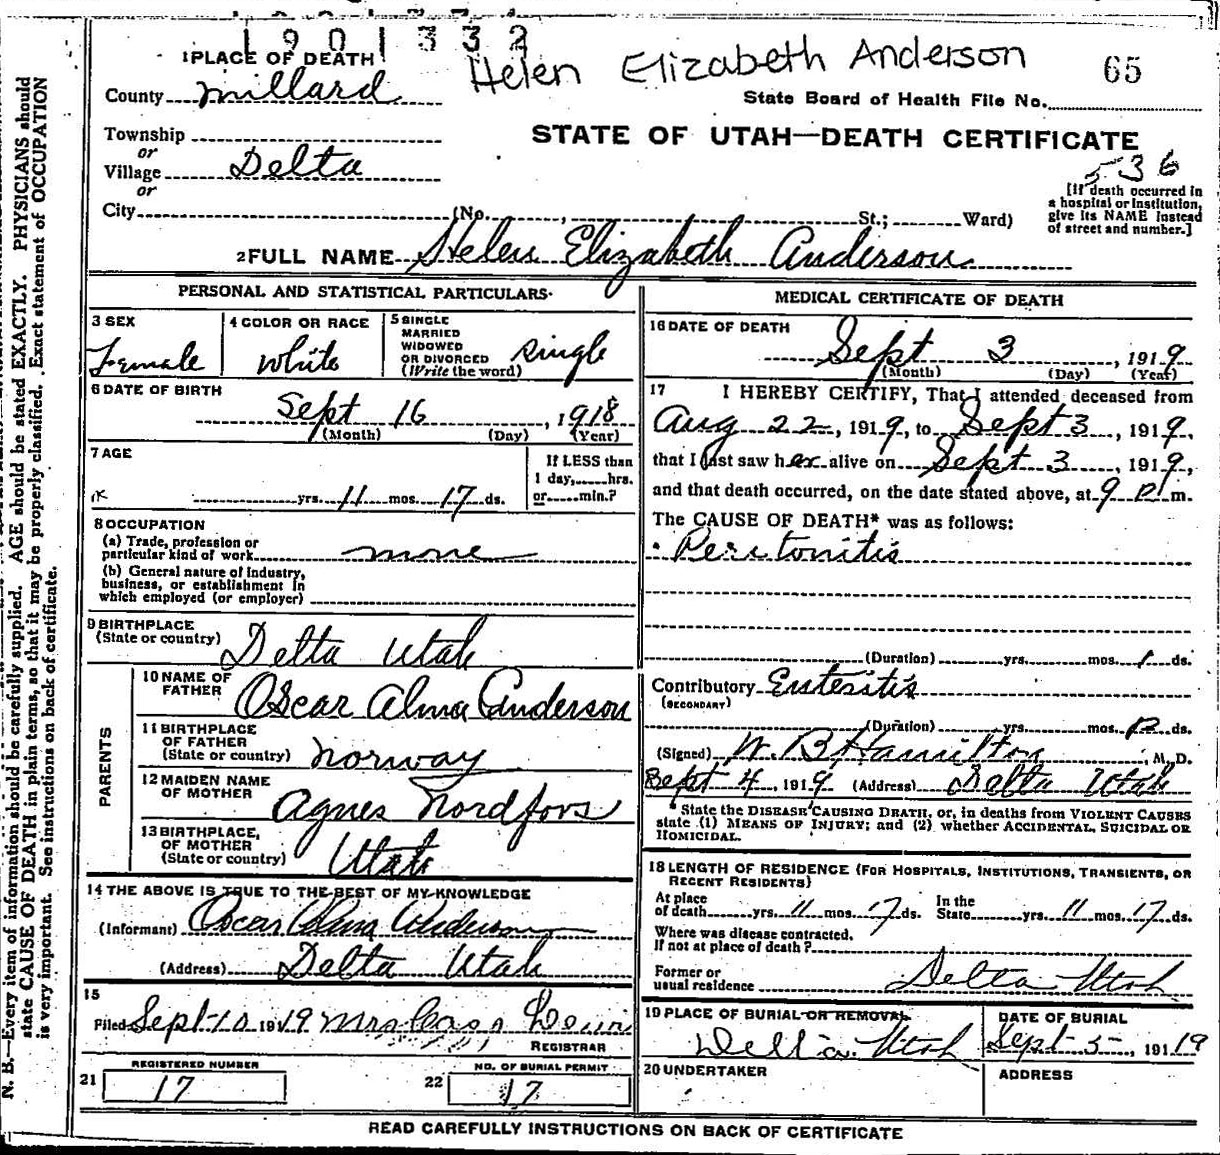 1901332
1 PLACE OF DEATH
Helen Elizabeth Anderson
65
County Millard
State Board of Health File No.
Township
STATE OF UTAH—DEATH CERTIFICATE
or
Village Delta
536
or
[If death occurred in
a hospital or institution,
give its NAME instead
of street and number.]
City (No. , St.; Ward)
2 FULL NAME Helen Elizabeth Anderson
PERSONAL AND STATISTICAL PARTICULARS
3 SEX
Female
4 COLOR OR RACE
White
5 SINGLE
MARRIED
WIDOWED
OR DIVORCED
(Write the word)
single
6 DATE OF BIRTH
Sept 16, 1918
(Month) (Day) (Year)
7 AGE
yrs. 11 mos. 17 ds.
If LESS than
1 day, hrs.
or min.?
8 OCCUPATION
(a) Trade, profession or
particular kind of work none
(b) General nature of industry,
business, or establishment in
which employed (or employer)
9 BIRTHPLACE
(State or country) Delta Utah
PARENTS
10 NAME OF
FATHER Oscar Alma Anderson
11 BIRTHPLACE
OF FATHER
(State or country) Norway
12 MAIDEN NAME
OF MOTHER Agnes Nordfors
13 BIRTHPLACE,
OF MOTHER
(State or country) Utah
14 THE ABOVE IS TRUE TO THE BEST OF MY KNOWLEDGE
(Informant) Oscar Alma Anderson
(Address) Delta Utah
15
Filed Sept 10 1919 Mrs
REGISTRAR
REGISTERED NUMBER
21 17
NO. OF BURIAL PERMIT
22 17
MEDICAL CERTIFICATE OF DEATH
16 DATE OF DEATH
Sept 3, 1919
(Month) (Day) (Year)
17 I HEREBY CERTIFY, That I attended deceased from
Aug 22, 1919, to Sept 3, 1919,
that I last saw her alive on Sept 3, 1919,
and that death occurred, on the date stated above, at 9 P.m.
The CAUSE OF DEATH* was as follows:
Peritonitis
(Duration) yrs. mos. 1 ds.
Contributory Enteritis
(SECONDARY)
(Duration) yrs. mos. ds.
(Signed) W. B. Hamilton, M. D.
Sept 4, 1919 (Address) Delta Utah
* State the DISEASE CAUSING DEATH, or, in deaths from VIOLENT CAUSES
state (1) MEANS OF INJURY; and (2) whether ACCIDENTAL, SUICIDAL OR
HOMICIDAL.
18 LENGTH OF RESIDENCE (FOR HOSPITALS, INSTITUTIONS, TRANSIENTS, OR
RECENT RESIDENTS)
At place
of death yrs. 11 mos. 17 ds.
In the
State yrs. 11 mos. 17 ds.
Where was disease contracted,
If not at place of death?
Former or
usual residence Delta Utah
19 PLACE OF BURIAL OR REMOVAL
Delta Utah
DATE OF BURIAL
Sept 5, 1919
20 UNDERTAKER
ADDRESS
READ CAREFULLY INSTRUCTIONS ON BACK OF CERTIFICATE
N. B.—Every item of information should be carefully supplied. AGE should be stated EXACTLY. PHYSICIANS should
state CAUSE OF DEATH in plain terms, so that it may be properly classified. Exact statement of OCCUPATION
is very important. See instructions on back of certificate.